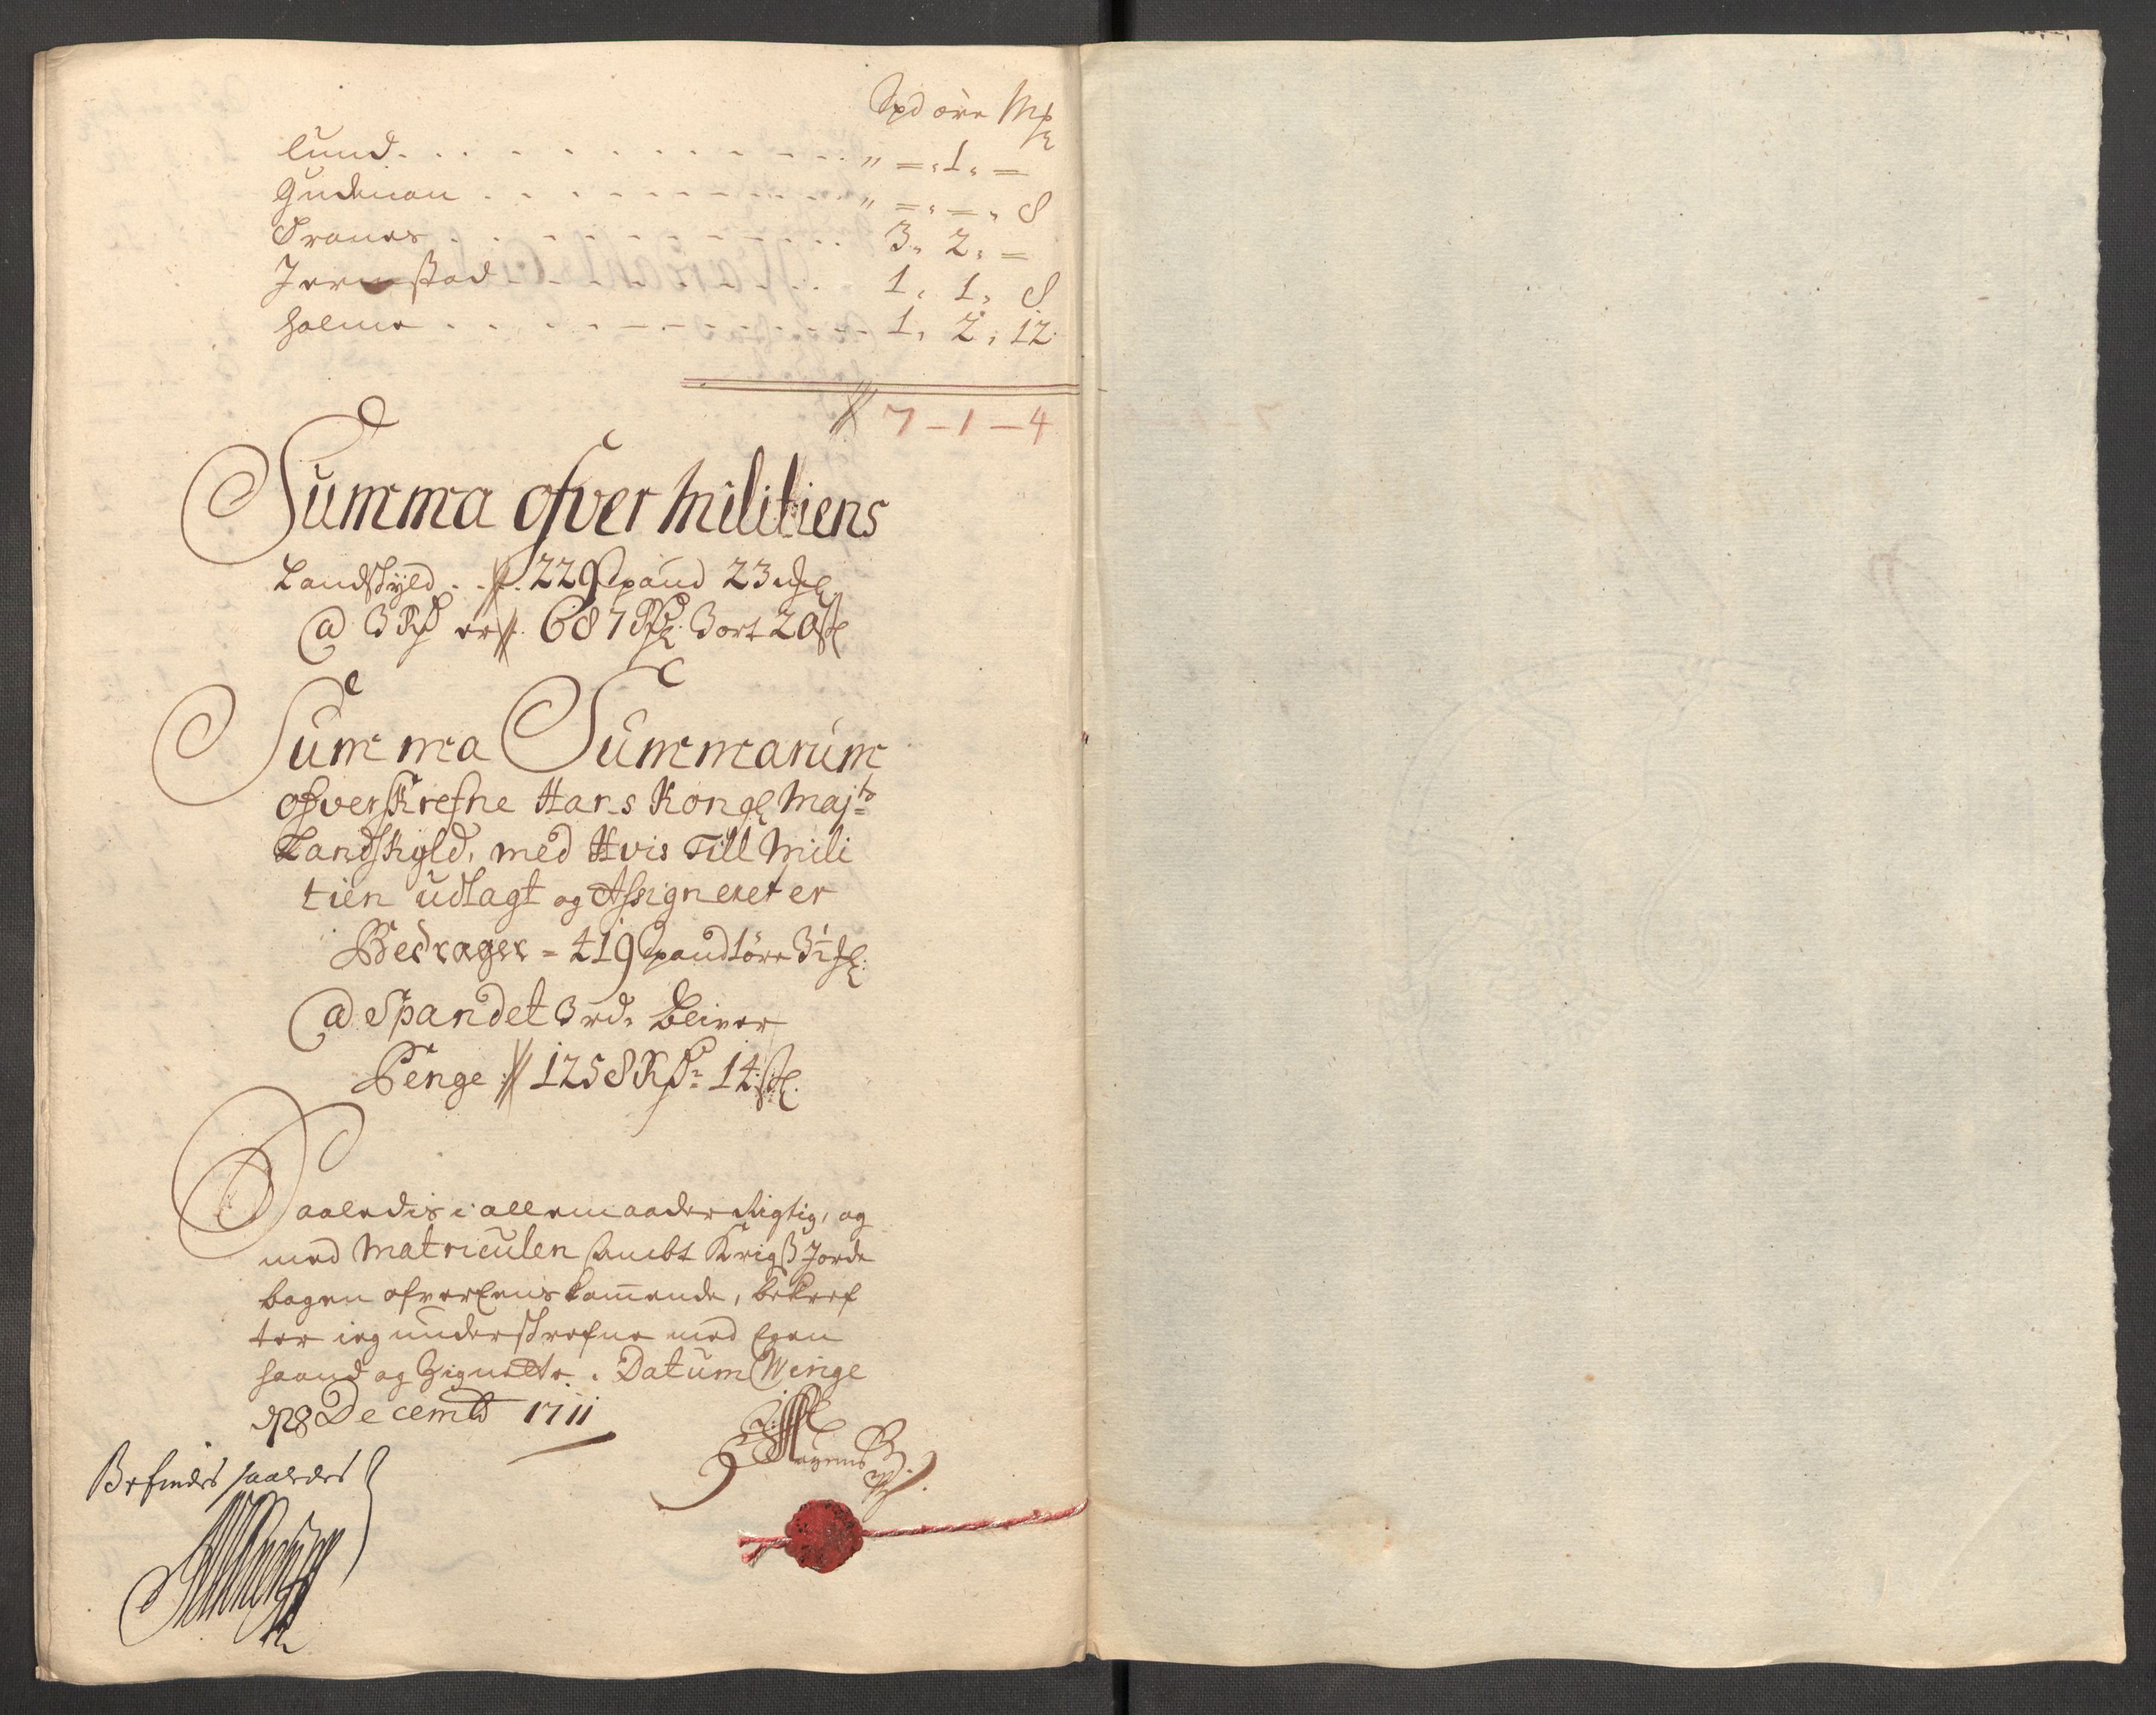 Spd öre Mk
Lund . . . . . . . . . . . . " = " 1 " =
Gudmoen . . . . . . . . . . . " = " = " 8
Tranes . . . . . . . . . . . 3 " 2 " =
Jermstad . . . . . . . . . . 1 " 1 " 8
Holme . . . . . . . . . . . . 1 " 2 " 12
7 – 1 – 4
Summa ofver Militiens
Landskyld . . 229 Spand 23
@ 3 Rd er 687 Rd 3 ort 20 s
Summa Summarum
ofverskrefne Hans Kongl Majts
Landskyld, med Hvis Till Mili
tien udlagt og Assigneret er
Bedrager = 419 Spand 1 öre 3½
@ Spandet 3 rd. bliver
Penge 1258 Rd 14 s
Saaledis i alle maader Rigtig, og
med Matriculen sambt Krigs Jorde
bogen ofverEenskommende, bekref
ter ieg underskrefne med Egen
haand og Zignette. Datum Winge
d 28 Decembr 1711
Befindes saaledes